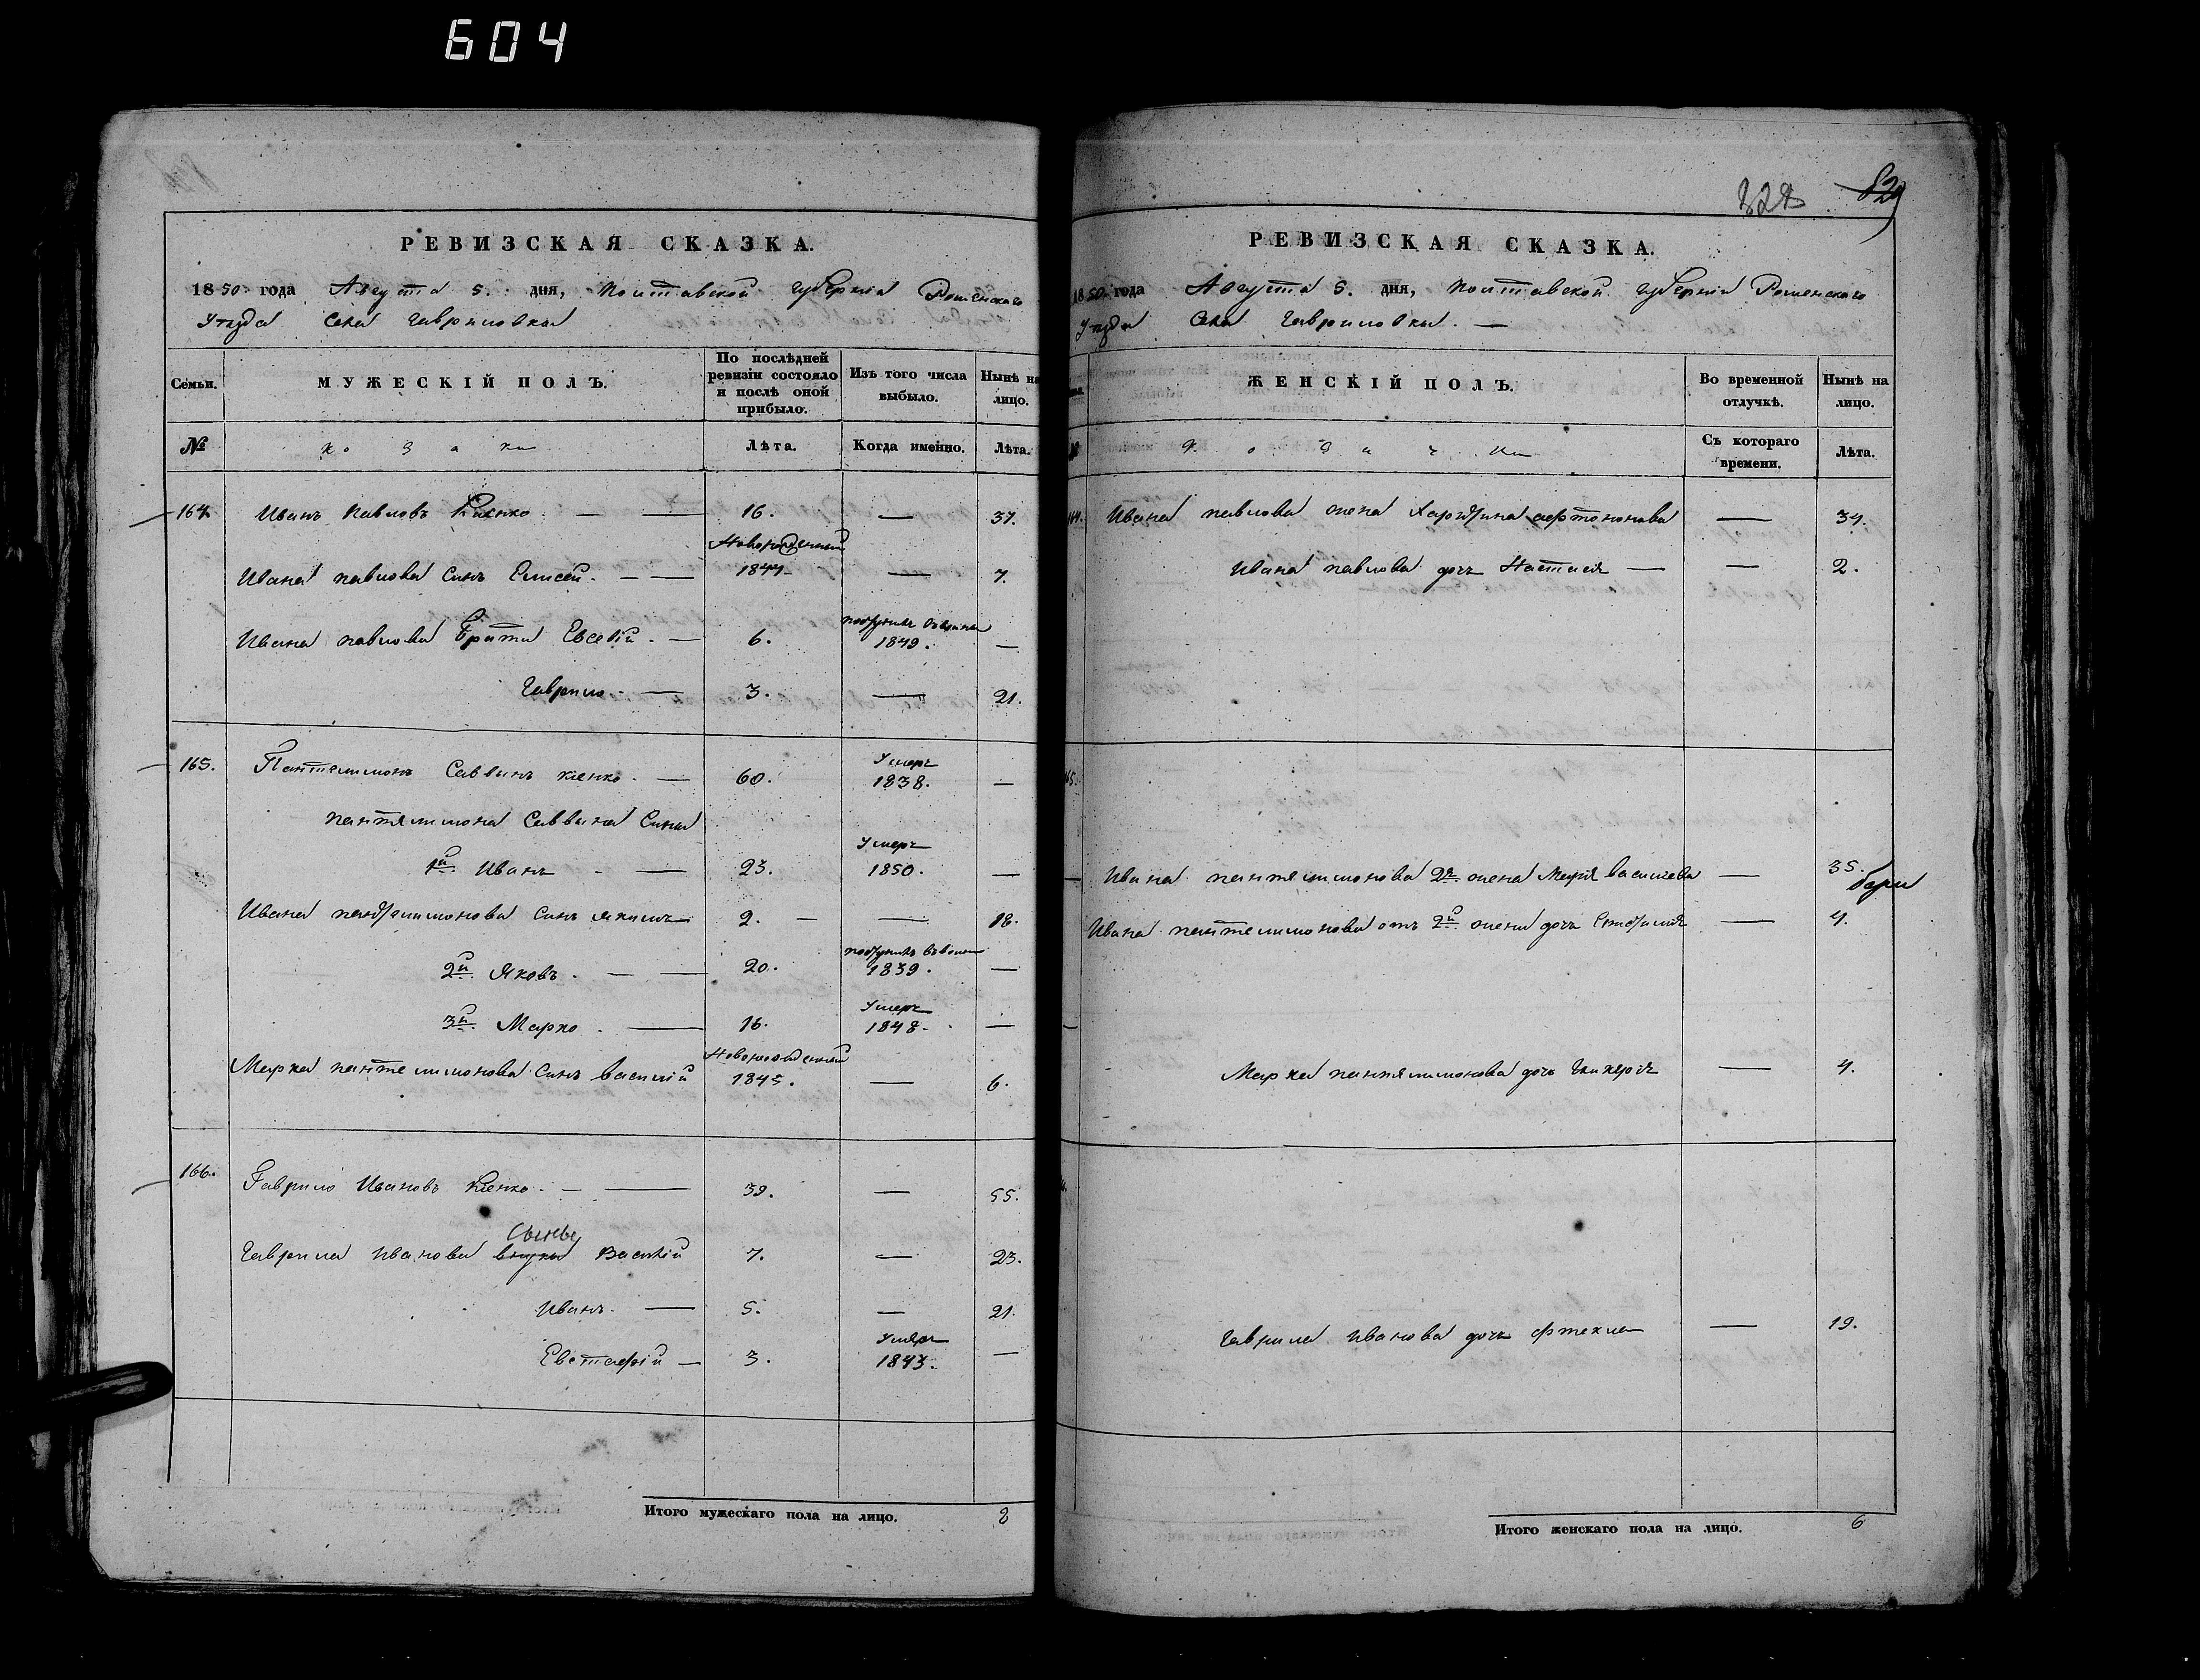 604
РЕВИЗСКАЯ СКАЗКА.
1850 года Августа 5. дня, Полтавской губерніи Роменского
Уезда Села Гавриловки
Семьи. МУЖЕСКІЙ ПОЛЪ. По послѣдней ревизіи состояло и послѣ оной прибыло. Изъ того числа выбыло. Нынѣ на лицо.
№ козаки Лѣта. Когда именно. Лѣта.
164 Иванъ Павловъ 16. — 37.
Ивана павлова Синъ Елисей. — Новорожденный 1844 — 7.
Ивана павлова брати Евсевій. — 6. 1849. —
Гаврило. — 3. — 21.
165. Пантелимонъ Саввинъ кіенко. — 60. Умеръ 1838. —
пантелимона Саввина Сини
1й Иванъ — 23. Умеръ 1850. —
Ивана пантелимонова Синъ якимъ 2. — — 18.
2й Яковъ. — 20. 1839. —
3й Марко. — 16. Умеръ 1848. —
Марка пантелимонова Синъ василій Новорожденный 1845. — 6.
166. Гаврило Ивановъ Кіенко. — 39. — 55.
Сыны
Гаврила Иванова внуки Василій 7. — 23.
Иванъ. — 5. — 21.
Евстафій — 3. Умеръ 1843. —
Итого мужескаго пола на лицо. 8
82
РЕВИЗСКАЯ СКАЗКА.
1850 года Августа 5. дня, Полтавской губерніи Роменского
Уезда Села Гавриловки. —
ЖЕНСКІЙ ПОЛЪ. Во временной отлучкѣ. Нынѣ на лицо.
№ козачки Съ котораго времени. Лѣта.
164. Ивана павлова жена — 34.
Ивана павлова дочь Настасія — — 2.
165.
— Ивана пантелимонова 2я жена Марія васильева — 35.
Ивана пантелимонова отъ 2й жени дочь — 4.
Марка пантелимонова дочь Гликерія — 4.
Гаврила Иванова дочь Фтекла — 19.
Итого женскаго пола на лицо. 6